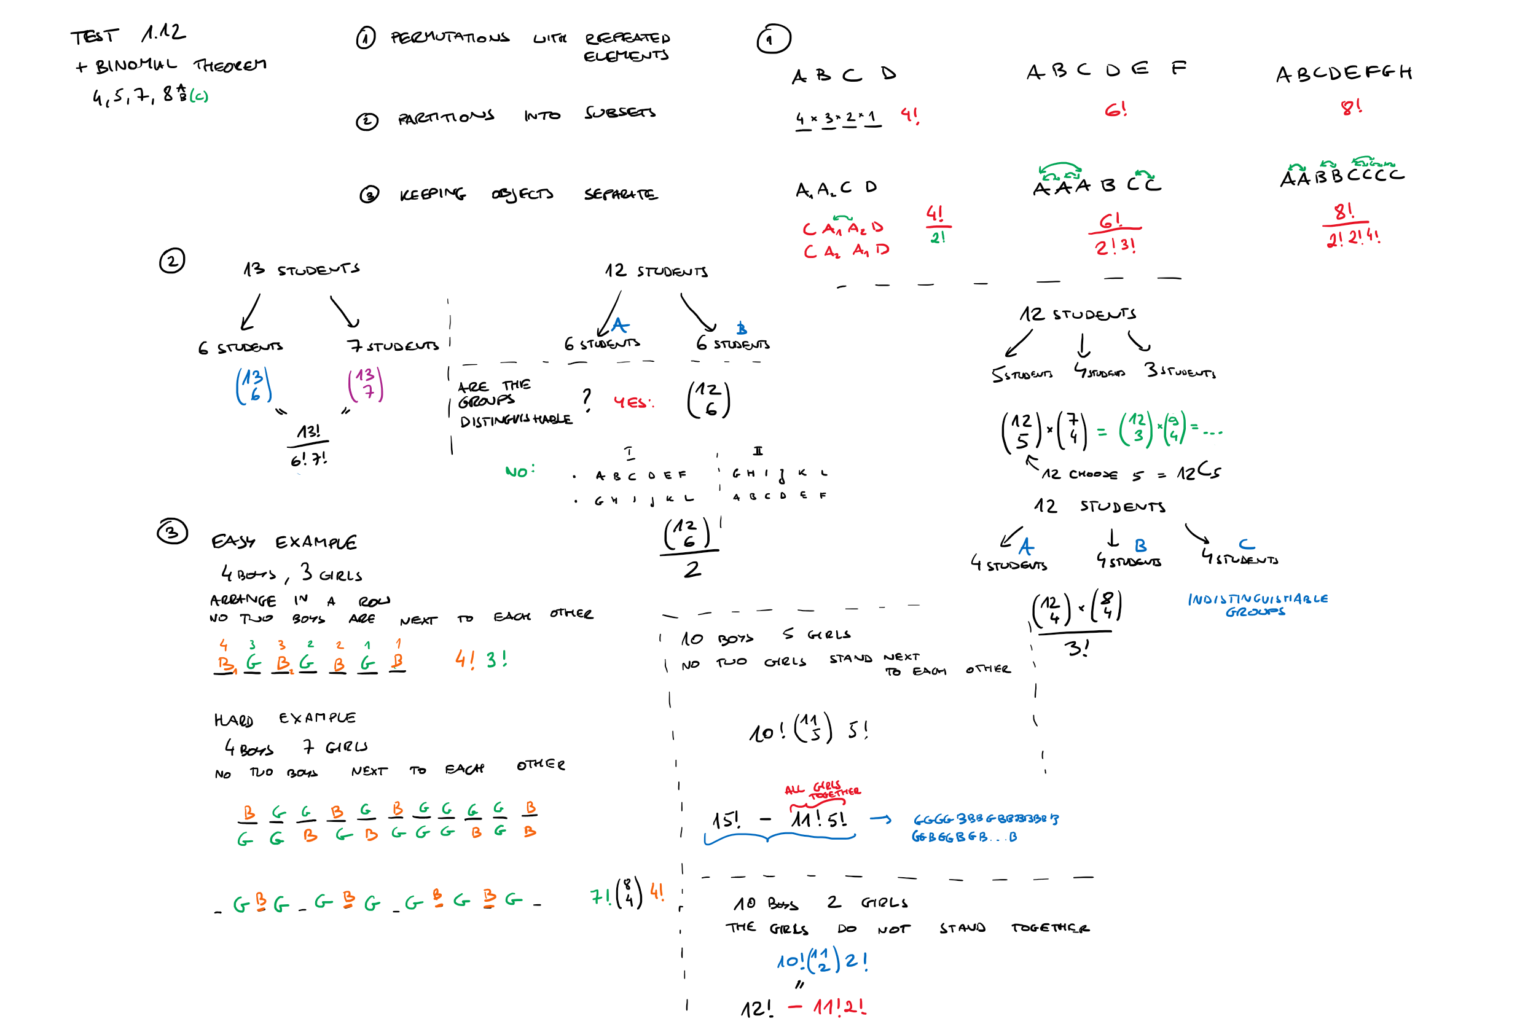 TEST 1.12
+ BINOMIAL THEOREM
4, 5, 7, 8 A B (C)
① PERMUTATIONS WITH REPEATED
ELEMENTS
② PARTITIONS INTO SUBSETS
③ KEEPING OBJECTS SEPARATE
①
A B C D
4 × 3 × 2 × 1 4!
A B C D E F
6!
A B C D E F G H
8!
A₁ A₂ C D
C A₁ A₂ D
C A₂ A₁ D
4!
2!
A A A B C C
6!
2! 3!
A A B B C C C C
8!
2! 2! 4!
②
13 STUDENTS
6 STUDENTS 7 STUDENTS
(13 6) (13 7)
" "
13!
6! 7!
12 STUDENTS
A B
6 STUDENTS 6 STUDENTS
ARE THE
GROUPS
DISTINGUISHABLE ?
YES: (12 6)
NO:
I II
· A B C D E F G H I J K L
· G H I J K L A B C D E F
(12 6)
2
12 STUDENTS
5 STUDENTS 4 STUDENTS 3 STUDENTS
(12 5) × (7 4) = (12 3) × (9 4) = ...
12 CHOOSE 5 = 12C5
12 STUDENTS
A B C
4 STUDENTS 4 STUDENTS 4 STUDENTS
(12 4) × (8 4)
3!
INDISTINGUISHABLE
GROUPS
③
EASY EXAMPLE
4 BOYS, 3 GIRLS
ARRANGE IN A ROW
NO TWO BOYS ARE NEXT TO EACH OTHER
4 3 3 2 2 1 1
B G B G B G B 4! 3!
HARD EXAMPLE
4 BOYS 7 GIRLS
NO TWO BOYS NEXT TO EACH OTHER
B G G B G B G G G G B
G G B G B G G G B G B
_ G B G _ G B G _ G B G B G _ 7! (8 4) 4!
10 BOYS 5 GIRLS
NO TWO GIRLS STAND NEXT
TO EACH OTHER
10! (11 5) 5!
ALL GIRLS
TOGETHER
15! - 11! 5!
GGBGGBGB...B
10 BOYS 2 GIRLS
THE GIRLS DO NOT STAND TOGETHER
10! (11 2) 2!
"
12! - 11! 2!